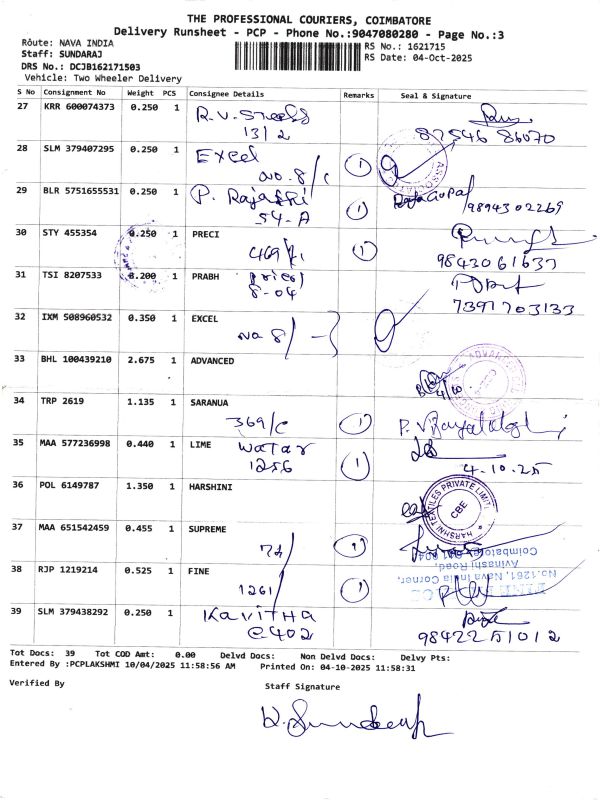 THE PROFESSIONAL COURIERS, COIMBATORE
Delivery Runsheet - PCP - Phone No.:9047080280 - Page No.:3
Route: NAVA INDIA
Staff: SUNDARAJ
DRS No.: DCJB162171503
Vehicle: Two Wheeler Delivery
RS No.: 1621715
RS Date: 04-Oct-2025
S No Consignment No Weight PCS Consignee Details Remarks Seal & Signature
27 KRR 600074373 0.250 1 R.V.
13/2
82546 86070
28 SLM 379407295 0.250 1 Excel 1
no. 8/c
29 BLR 5751655531 0.250 1 P. Rajashri 1 RajaGopal
54-A 9894302269
30 STY 455354 0.250 1 PRECI 1
469/ 9843061637
31 TSI 8207533 8.200 1 PRABH
8-04 7397703133
32 IXM 508960532 0.350 1 EXCEL
no 8/
33 BHL 100439210 2.675 1 ADVANCED
4/10
34 TRP 2619 1.135 1 SARANUA
369/c 1 P.
35 MAA 577236998 0.440 1 LIME Watar 1
1256 4.10.25
36 POL 6149787 1.350 1 HARSHINI
HARSHNI TEXTILES PRIVATE LIMITED CBE
37 MAA 651542459 0.455 1 SUPREME
72 1
38 RJP 1219214 0.525 1 FINE
1261 1
No.1261, Nava India Corner,
Avinashi Road,
Coimbatore
39 SLM 379438292 0.250 1 KAVITHA
C402 9842251012
Tot Docs: 39 Tot COD Amt: 0.00 Delvd Docs: Non Delvd Docs: Delvy Pts:
Entered By :PCPLAKSHMI 10/04/2025 11:58:56 AM Printed On: 04-10-2025 11:58:31
Verified By Staff Signature